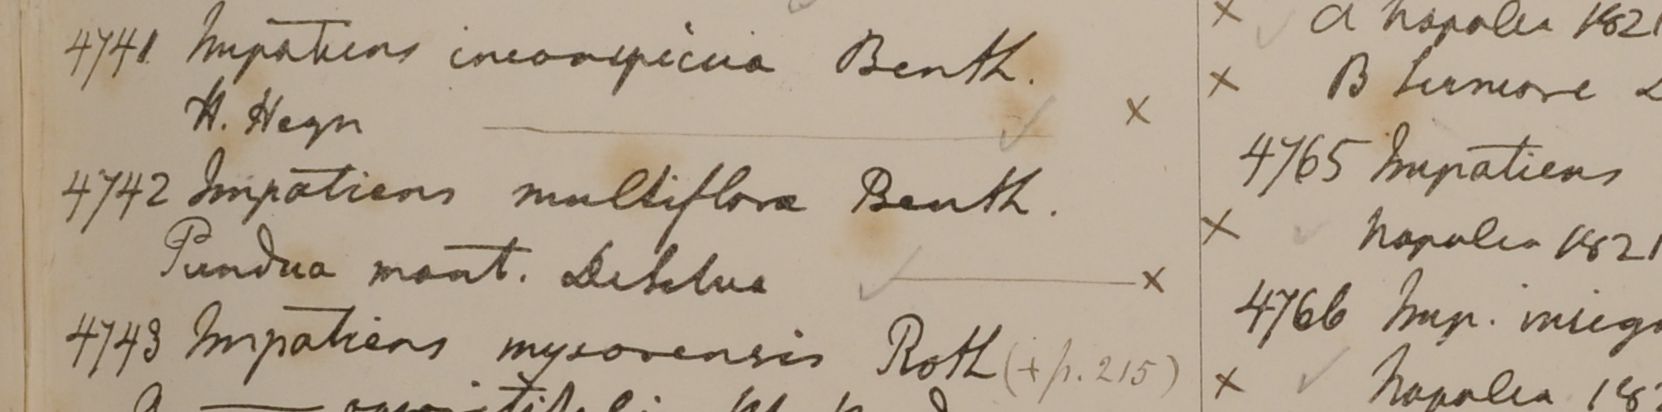 4741 Impatiens inconspicua Benth.
H. Heyn
4742 Impatiens multiflora Benth.
Pundua mont. DeSilva
4743 Impatiens mysorensis Roth (+ p. 215)
a Napalia 1821
B
4765 Impatiens
Napalia 1821
4766 Imp. insig
Napalia 182